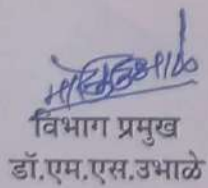 विभाग प्रमुख
डॉ.एम.एस.उभाळे